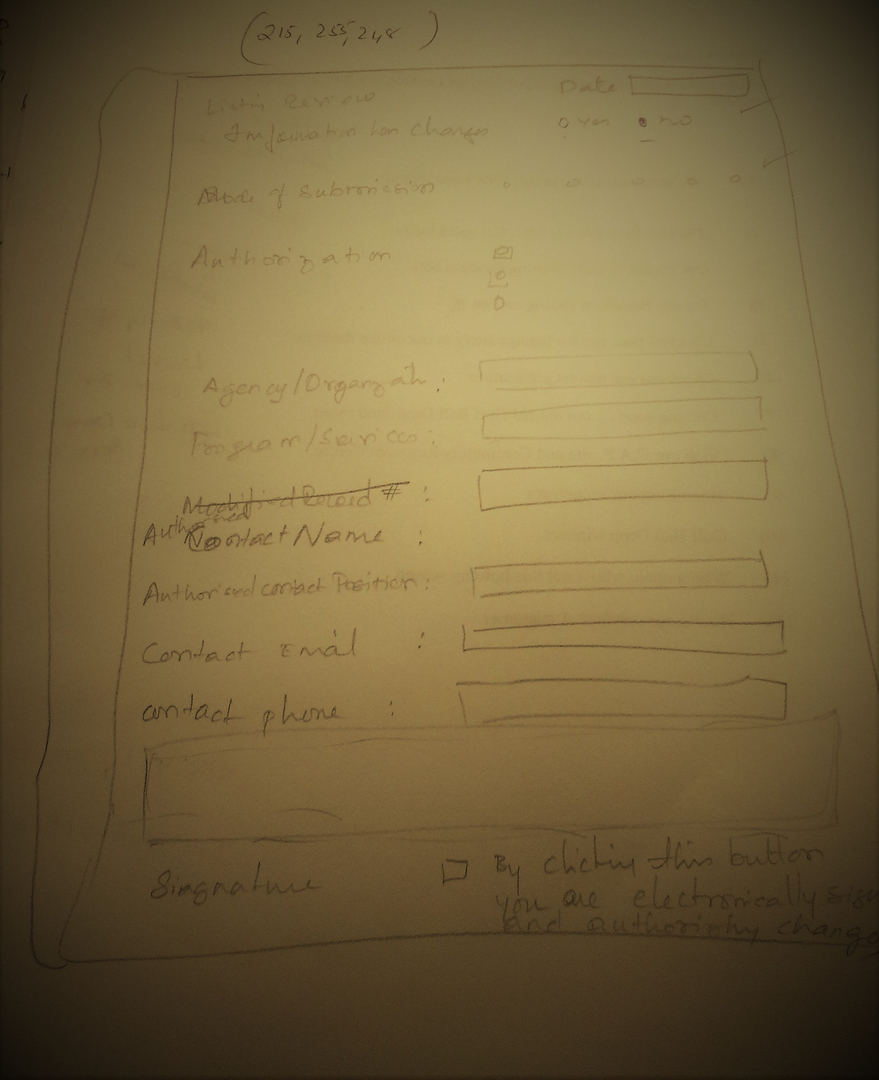 (215, 255, 248)
Date
Listing Review
Information has changes yes no
Mode of Submission
Authorization
Agency/Organizatn :
Program/Services :
Modified Record # :
Authorised
Contact Name :
Authorised contact Position :
Contact Email :
contact phone :
Singnature
By clicking this button
you are electronically sign
and authorizing change